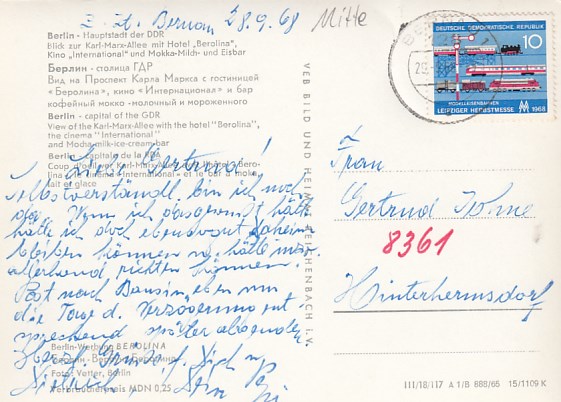 z. Zt. Bernau 28.9.68
Mitte
Berlin - Hauptstadt der DDR
Blick zur Karl-Marx-Allee mit Hotel „Berolina",
Kino „International" und Mokka-Milch- und Eisbar
Берлин - столица ГДР
Вид на Проспект Карла Маркса с гостиницей
«Беролина», кино «Интернационал» и бар
кофейный мокко-молочный и мороженного
Berlin - capital of the GDR
View of the Karl-Marx-Allee with the hotel "Berolina",
the cinema "International"
and Mocha-milk-ice-cream-bar
Berlin - capitale de la RDA
Coup d'oeil vers Karl-Marx-Allee à l'hôtel „Bero-
lina", le cinéma «International» et le bar à moka,
lait et glace
Liebe Gertrud!
Selbstverständl. bin ich noch
da. Wenn ich das geahnt hätte
hätte ich doch ebensogut daheim
bleiben können u. hätte mir
allerhand
können.
Post nach
die Tour d. Verzögerung ent-
sprechend später
Herzl. Grüße f. Dich u.
Berlin-Werbung BEROLINA
Fotos: Vetter, Berlin
Verbraucherpreis MDN 0,25
VEB BILD UND HEIMAT REICHENBACH i. V.
DEUTSCHE DEMOKRATISCHE REPUBLIK
10
MODELLEISENBAHNEN
LEIPZIGER HERBSTMESSE 1968
Frau
Gertrud
8361
Hinterhermsdorf
III/18/117 A 1/B 888/65 15/1109 K